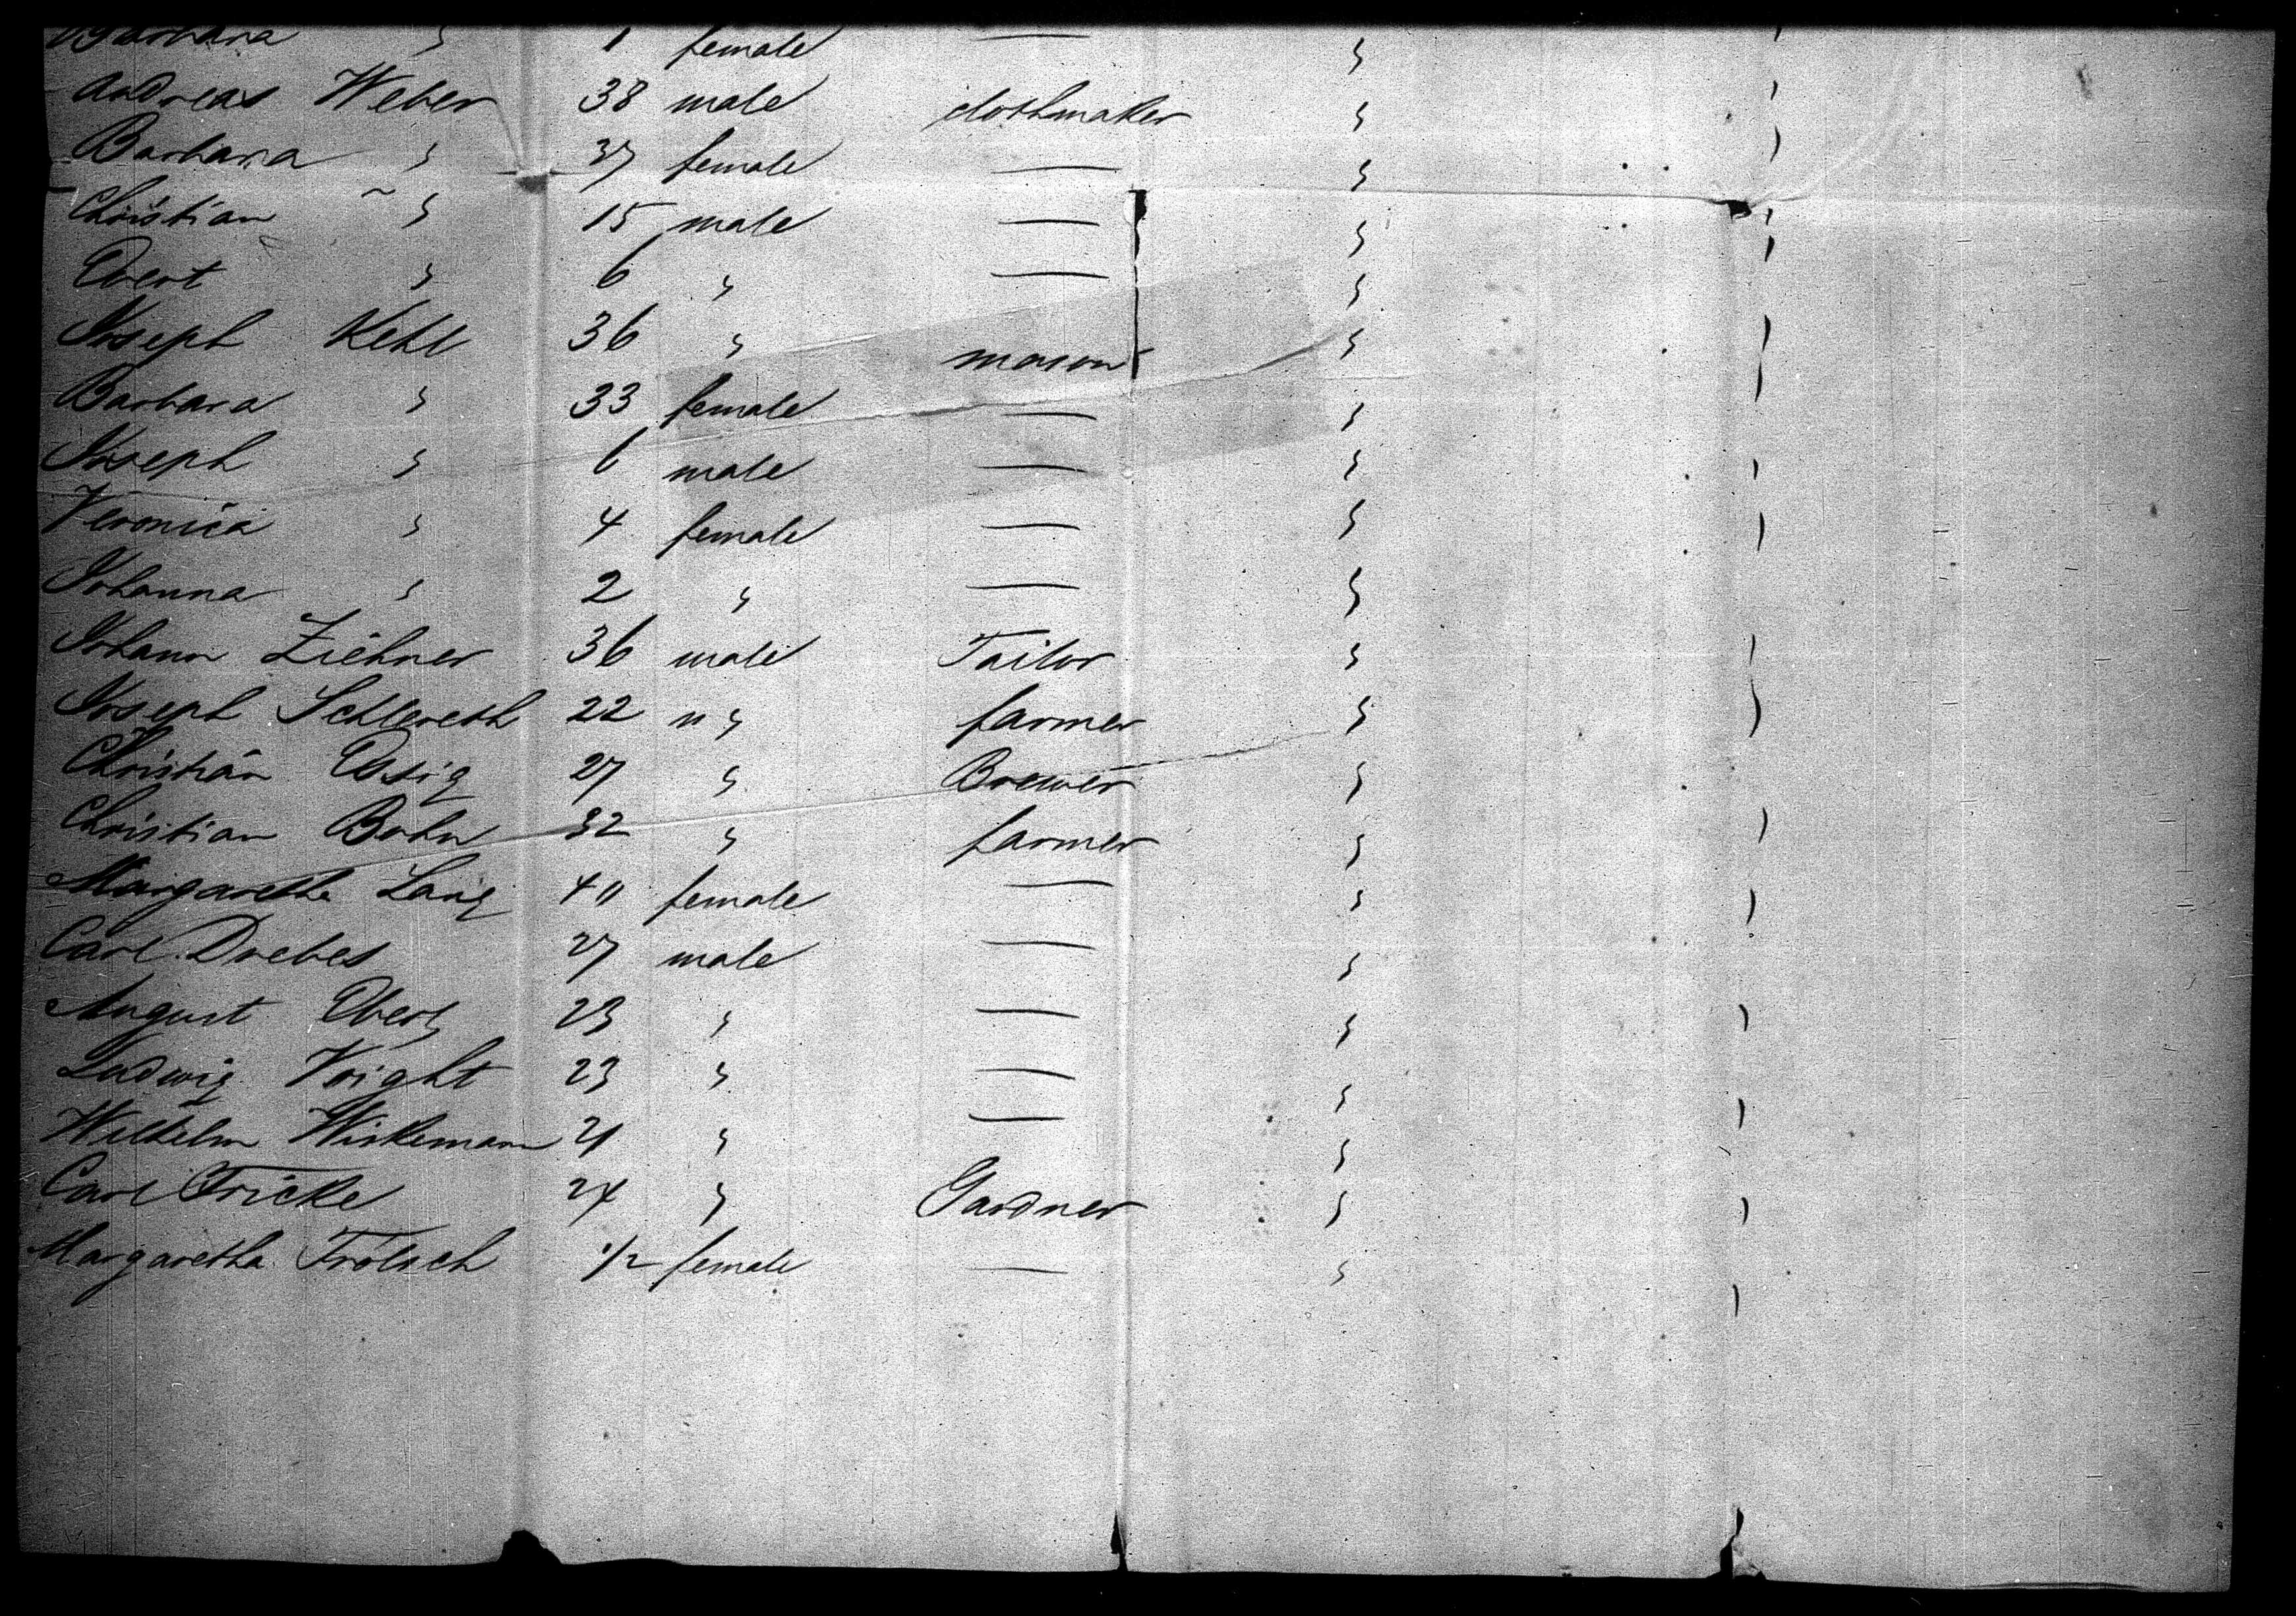 Barbara " 1 female — "
Andreas Weber 38 male clothmaker "
Barbara " 37 female — "
Christian " 15 male — "
Evert " 6 " — "
Joseph Kehl 36 " mason "
Barbara " 33 female — "
Joseph " 6 male — "
Veronica " 4 female — "
Johanna " 2 " — "
Johann Ziehner 36 male Tailor "
Joseph Schlereth 22 " " farmer "
Christian Essig 27 " Brewer "
Christian Bohn 32 " farmer "
Margarethe Lang 40 female — "
Carl Drebes 27 male — "
August Ebert 23 " — "
Ludwig Voight 23 " — "
Wilhelm Wiskemann 21 " — "
Carl Fricke 24 " Gardner "
Margaretha Trölsch 1/2 female — "